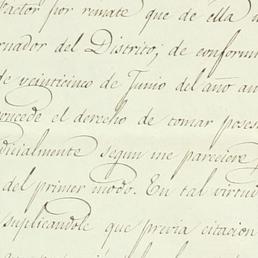 factor por remate que de ella
ernador del Distrito, de conformi
de veinticinco de Junio del año an
oncede el derecho de tomar poses
dicialmente segun me pareciere
del primer modo. En tal virtud
suplicandole que prévia citacion